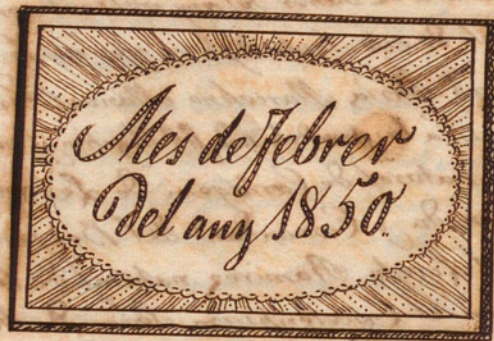 Mes de Febrer
Del any 1850.